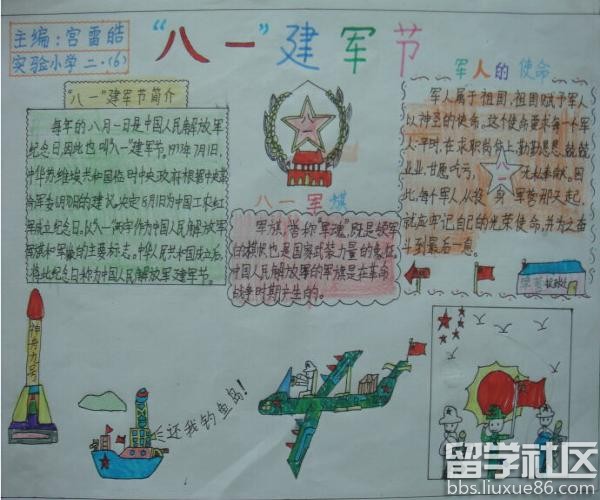 主编:宫雷皓
实验小学二·(6)
“八一”建军节
“八一”建军节简介
每年的八月一日是中国人民解放军
纪念日,因此也叫八一建军节。1933年7月1日,
中华苏维埃共和国临时中央政府根据中央革
命军委6月30日的建议,决定8月1日为中国工农红
军成立纪念日。以八一两字作为中国人民解放军
军旗和军徽的主要标志。中华人民共和国成立后,
将此纪念日称为中国人民解放军建军节。
八一军旗
军旗,昔称“军魂”,既是续军
的模状也是国家武装力量的象征。
中国人民解放军的军旗是在革命
战争时期产生的。
军人的使命
军人属于祖国,祖国赋予军人
以神圣的使命。这个使命要求每一个军
人平时,在求职岗位上勤勤恳恳,兢兢
业业,甘愿吃亏,无私奉献。因
此,每个军人从投身军营那天起,
就应牢记自己的光荣使命,并为之奋
斗到最后一息。
神舟九号
还我钓鱼岛!
留学社区
bbs.liuxue86.com